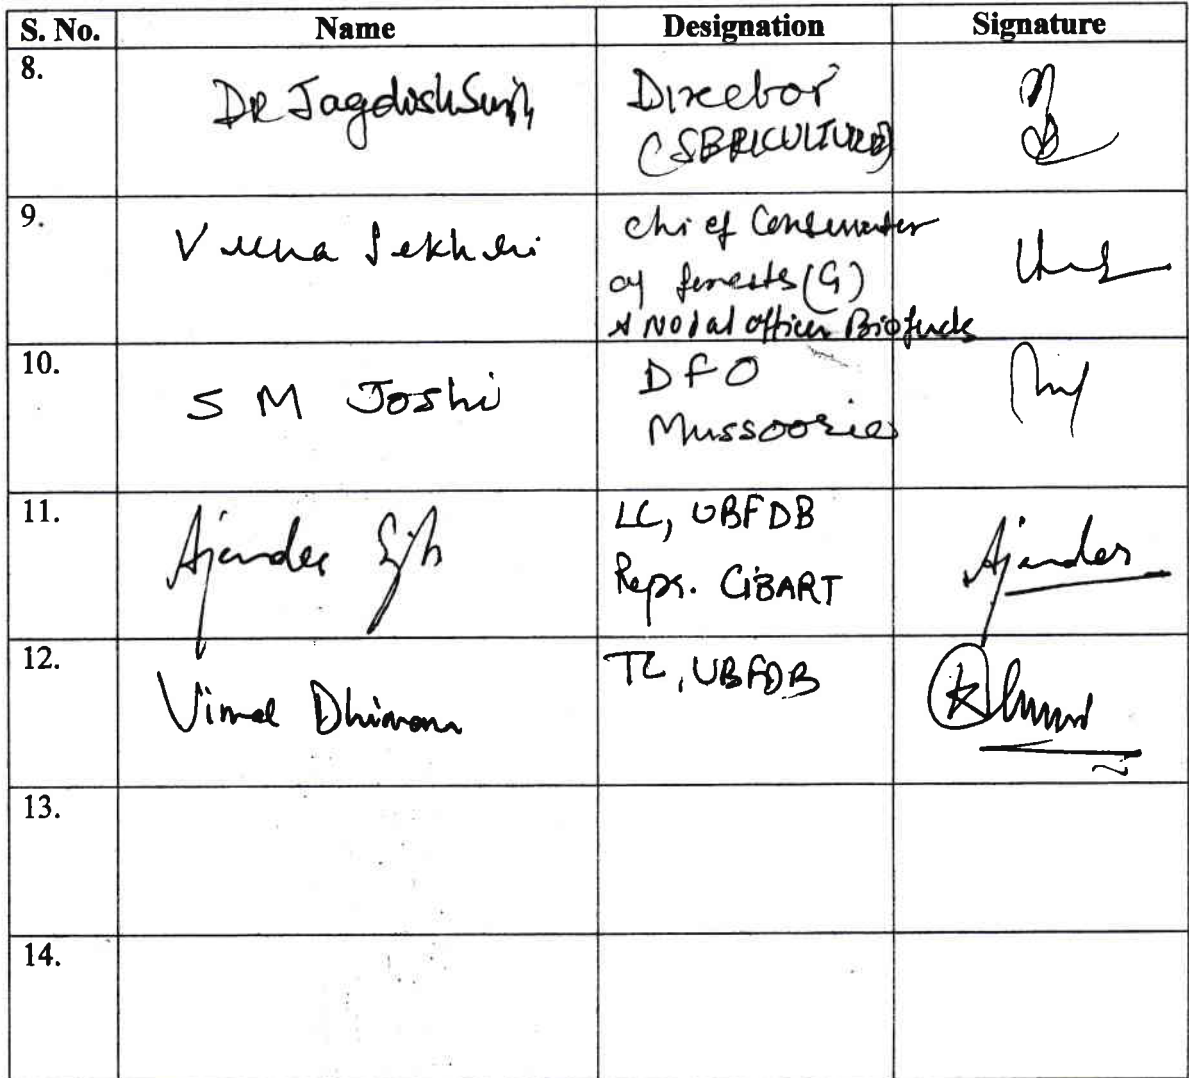 S. No. Name Designation Signature
8. Dr Jagdish Singh Director
(SERICULTURE)
9. Veena Sekhri Chief Conservator
of forests (G)
& Nodal officer Biofuels
10. S M Joshi DFO
Mussoorie
11. Ajender LC, UBFDB Ajender
Repr. CIBART
12. Vimal Dhiman TC, UBFDB
13.
14.